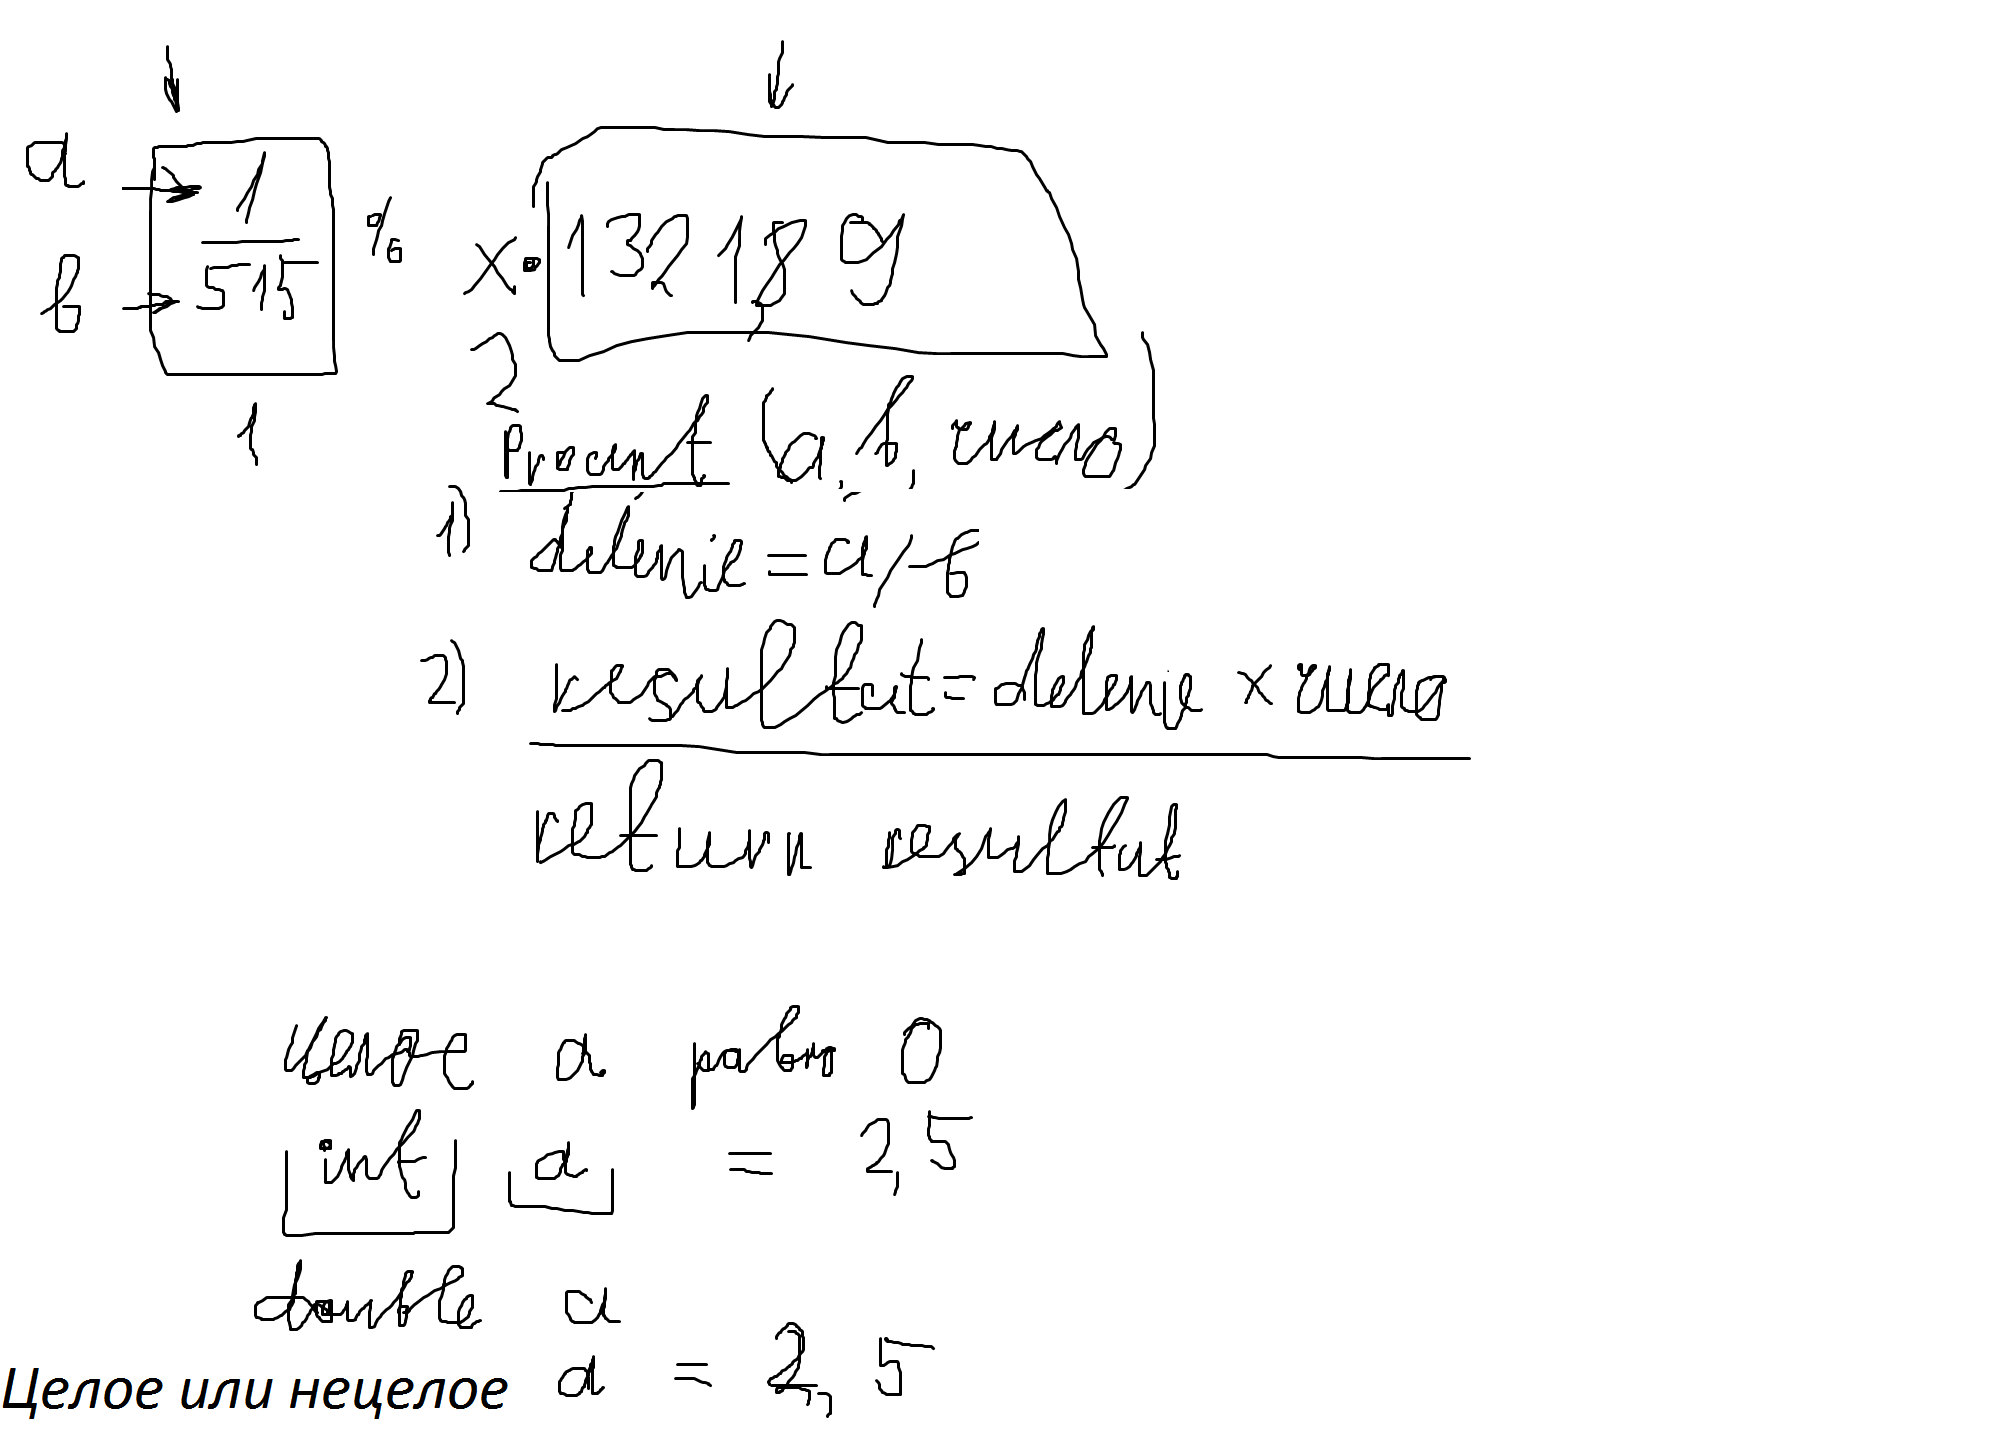 a 1 % x 132189
b 515
1 2
Procent (a, b, число)
1) delenie = a / b
2) resultat = delenie x число
return resultat
Целое a равно 0
int a = 2,5
double a
Целое или нецелое a = 2,5